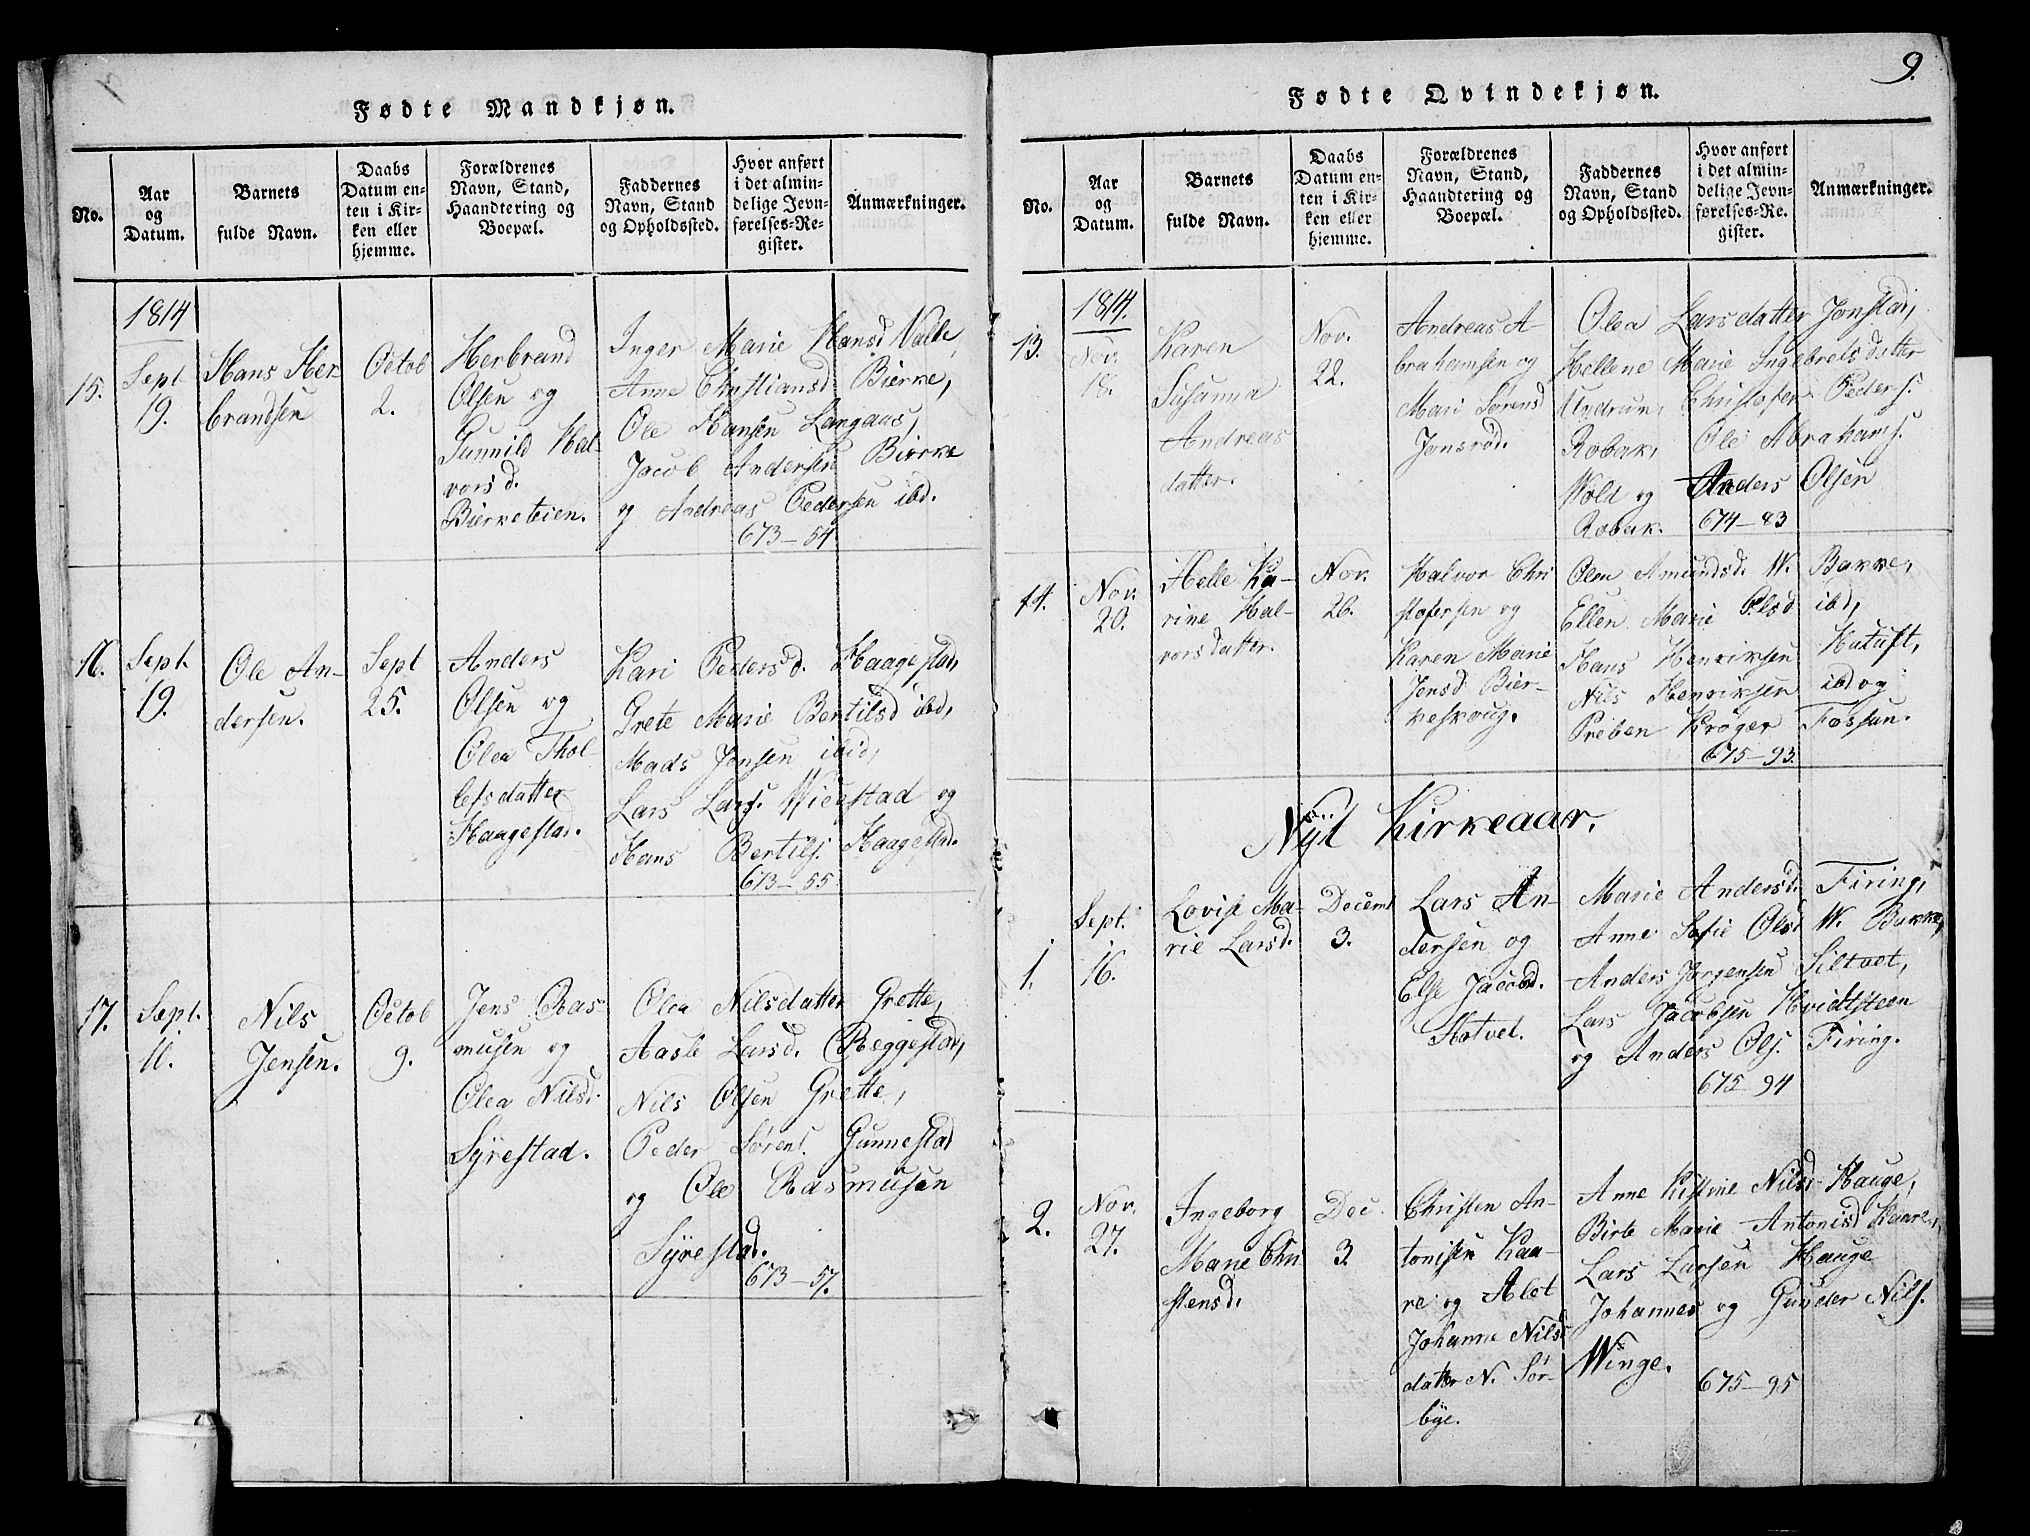 Fødte Mandkjøn.
No.
Aar
og
Datum.
Barnets
fulde Navn.
Daabs
Datum en-
ten i Kir-
ken eller
hjemme.
Forældrenes
Navn, Stand,
Haandtering og
Boepæl.
Faddernes
Navn, Stand
og Opholdssted.
Hvor anført
i det almin-
delige Jevn-
førelses-Re-
gister.
Anmærkninger.
1814
15.
Sept
19.
Hans Her-
brandsen
Octob
2.
Herbrand
Olsen og
Gunnild Hal-
vorsd.
Bierketeien.
Inger Marie Hansd Valbe,
Anne Christiansd Bierke,
Ole Hansen Langaas,
Jacob Andersen Bierke
og Andreas Pedersen ibd.
673-54
16.
Sept.
19.
Ole An-
dersen.
Sept
25.
Anders
Olsen og
Olea Thol
lefsdatter
Haagestad.
Kari Pedersd. Haagestad,
Grete Marie Bertilsd ibd,
Mads Jensen ibid,
Lars Lars. Wiegstad og
Hans Bertils. Haagestad.
673-55
17.
Sept.
11.
Nils
Jensen.
Octob
9.
Jens Ras-
musen og
Olea Nilsd.
Syrestad.
Olea Nilsdatter Grette,
Aasle Larsd. Reggestad,
Nils Olsen Grette,
Peder Sørens. Gunnestad
og Ole Rasmusen
Syrestad.
673-57.
9.
Fødte Qvindekjøn.
No.
Aar
og
Datum.
Barnets
fulde Navn.
Daabs
Datum en-
ten i Kir-
ken eller
hjemme.
Forældrenes
Navn, Stand,
Haandtering og
Boepæl.
Faddernes
Navn, Stand
og Opholdssted.
Hvor anført
i det almin-
delige Jevn-
førelses-Re-
gister.
Anmærkninger.
1814.
13.
Nov.
18.
Karen
Susanna
Andreas
datter.
Nov.
22.
Andreas A-
brahamsen og
Mari Sørensd
Jonsrød.
Olea Larsdatter Jonstad,
Hellene Marie Ingebretsdatter
Undrum, Christofer Peders.
Robak, Ole Abrahams.
Wold og Anders Olsen
Robak.
674-83
14.
Nov.
20.
Helle Ka-
rine Hal-
vorsdatter.
Nov.
26.
Halvor Chri
stofersen og
Karen Marie
Jensd Bier-
keskoug.
Olea Amundsd. W. Bakke,
Ellen Marie Olsd ibd,
Hans Henriksen Hatuft,
Nils Henriksen ibd og
Preben Krøger Fossun.
675-93
Nyt Kirkeaar.
1.
Sept.
16.
Lovise Ma-
rie Larsd.
Decemb
3.
Lars An-
dersen og
Else Jacobd.
Hotvet.
Marie Andersd. Firing,
Anne Sofie Olsd W. Bakke,
Anders Jørgensen Siltvet,
Lars Jacobsen Hvidtsteen
og Anders Ols. Firing.
675-94
2.
Nov.
27.
Ingeborg
Marie Chri
stensd.
Dec.
3.
Christen An-
tonisen Kaa-
re og Alet
Johanne Nils
datter N. Sør-
bye.
Anne Kistine Nilsd Hauge,
Birte Marie Antonisd Kaare,
Lars Larsen Hauge
Johannes og Gunder Nils.
Winge.
675-95